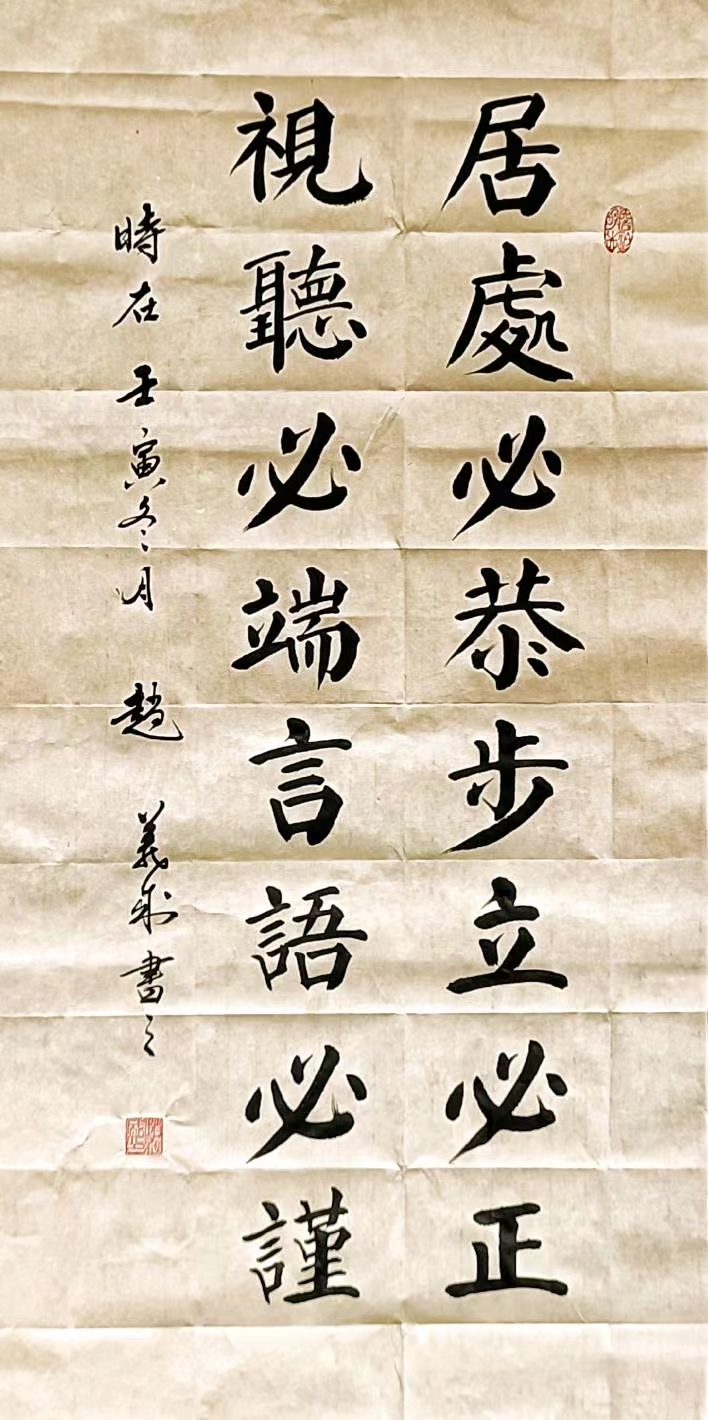 居處必恭步立必正
視聽必端言語必謹
時在壬寅冬月趙義成書之